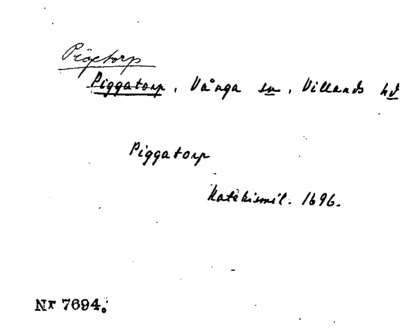 Piggatorp, Vånga sn, Villands hd
Piggatorp
Katekismil. 1696.
Nr 7694.